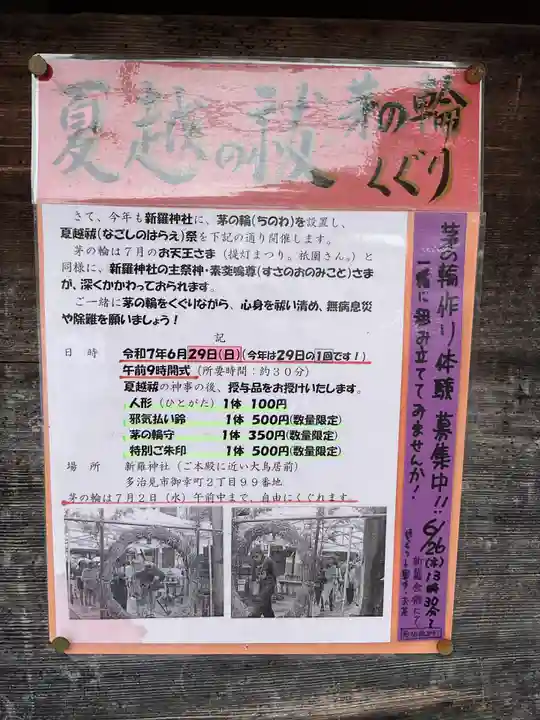 夏越の祓 茅の輪
くぐり
さて、今年も新羅神社に、茅の輪(ちのわ)を設置し、
夏越祓(なごしのはらえ)祭を下記の通り開催します。
茅の輪は７月のお天王さま(提灯まつり。祇園さん。)と
同様に、新羅神社の主祭神・素戔嗚尊(すさのおのみこと)さま
が、深くかかわっておられます。
ご一緒に茅の輪をくぐりながら、心身を祓い清め、無病息災
や除難を願いましょう！
記
日 時 令和7年6月29日(日)(今年は29日の1回です！)
午前9時開式(所要時間：約３０分)
夏越祓の神事の後、授与品をお授けいたします。
人形(ひとがた) 1体 100円
邪気払い鈴 1体 500円(数量限定)
茅の輪守 1体 350円(数量限定)
特別ご朱印 1体 500円(数量限定)
場 所 新羅神社(ご本殿に近い大鳥居前)
多治見市御幸町２丁目９９番地
茅の輪は７月２日(水)午前中まで、自由にくぐれます。
茅の輪作り体験 募集中!!
一緒に組み立ててみませんか！
6/26(木)13時30分〜
新羅会館にて